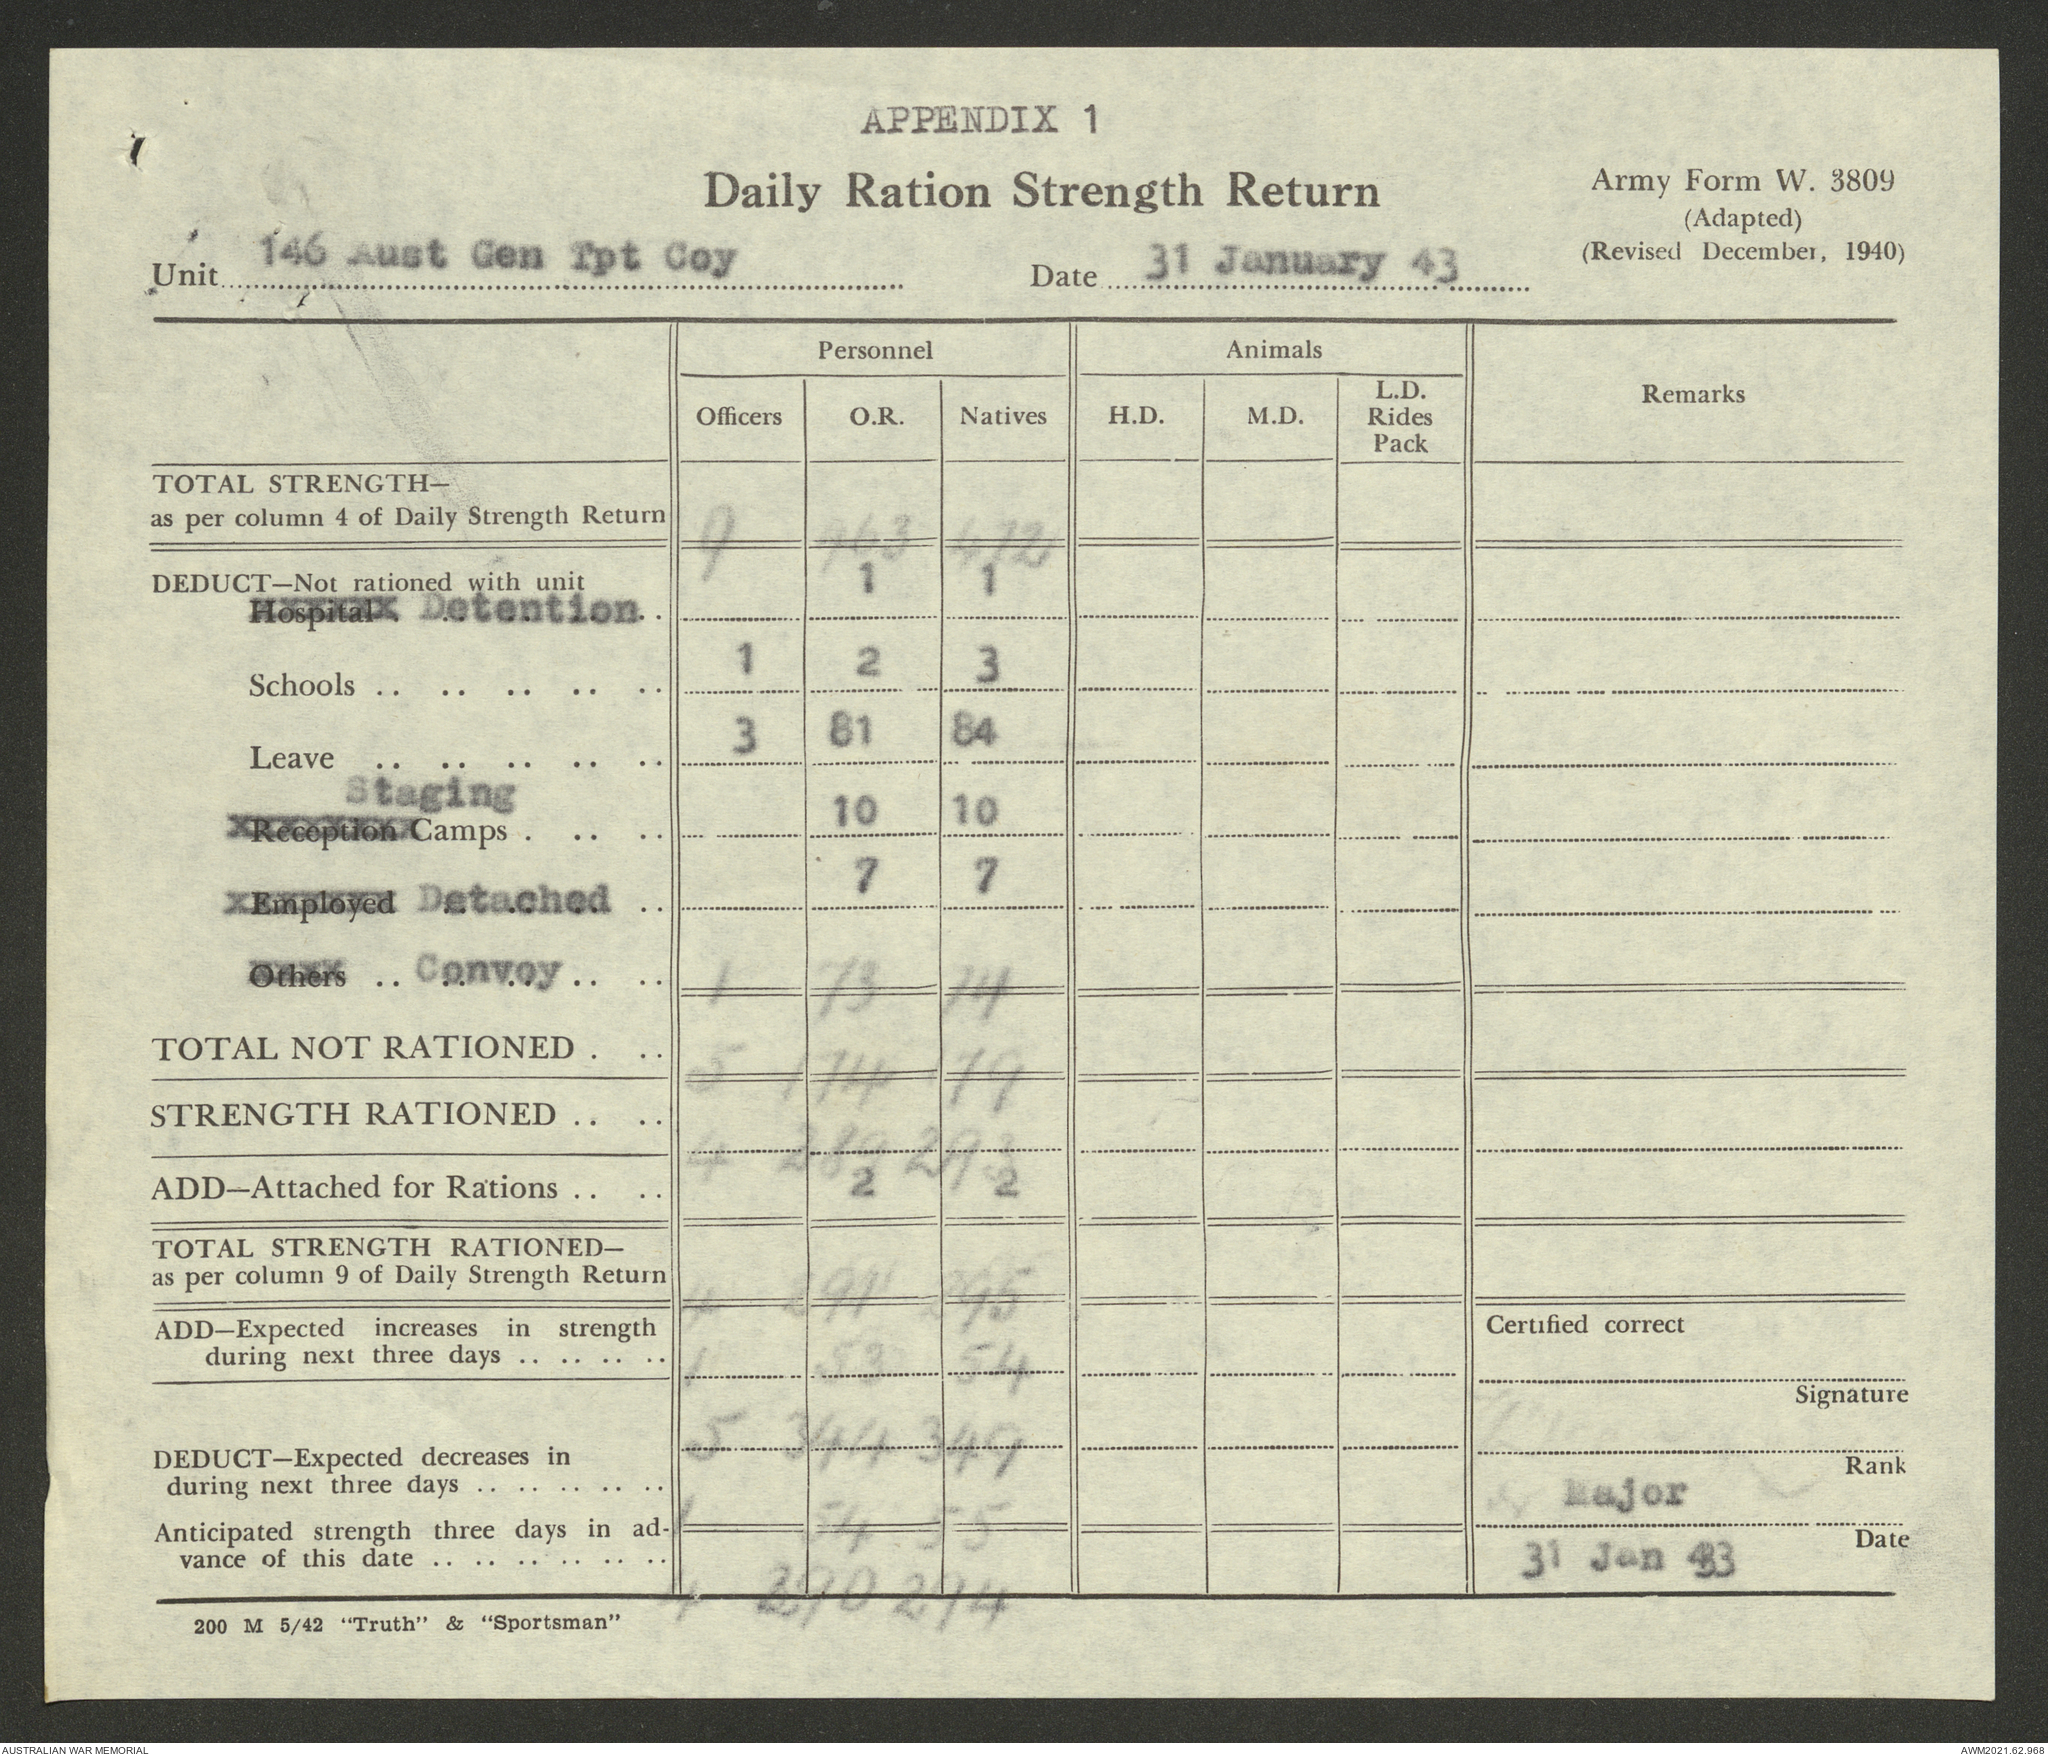 APPENDIX 1
Daily Ration Strength Return
Army Form W. 3809
(Adapted)
(Revised December, 1940)
Unit 146 Aust Gen Tpt Coy
Date 31 January 43
Personnel
Animals
Remarks
Officers O.R. Natives H.D. M.D. L.D. Rides Pack
TOTAL STRENGTH—
as per column 4 of Daily Strength Return 9 463 472
DEDUCT—Not rationed with unit
Hospital Detention 1 1
Schools 1 2 3
Leave 3 81 84
Staging
Reception Camps 10 10
Employed Detached 7 7
Others Convoy 1 73 74
TOTAL NOT RATIONED 5 174 179
STRENGTH RATIONED 4 289 293
ADD—Attached for Rations 2 2
TOTAL STRENGTH RATIONED—
as per column 9 of Daily Strength Return 4 291 295
ADD—Expected increases in strength
during next three days 1 53 54
5 344 349
DEDUCT—Expected decreases in
during next three days 1 54 55
Anticipated strength three days in ad-
vance of this date 4 290 294
Certified correct
Signature
Rank
Major
Date
31 Jan 43
200 M 5/42 "Truth" & "Sportsman"
AUSTRALIAN WAR MEMORIAL
AWM2021.62.968